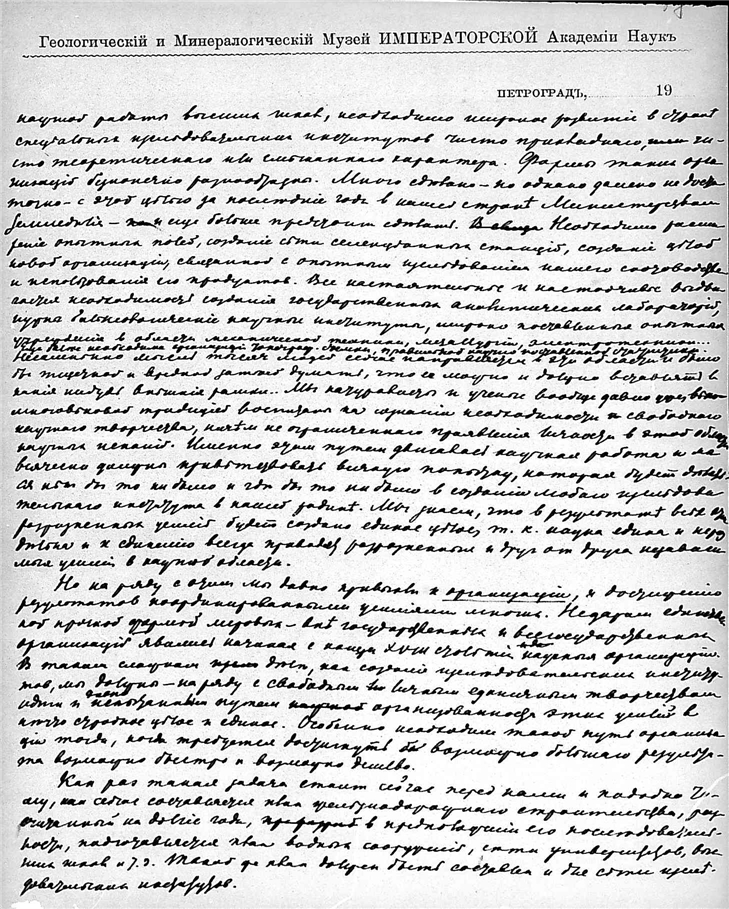 Геологическій и Минералогическій Музей ИМПЕРАТОРСКОЙ Академіи Наукъ
ПЕТРОГРАДЪ, 19
научной работы высших школ, необходимо широкое развитіе в стране
спеціальных изследовательских институтов чисто прикладного, или чи-
сто теоретическаго или смешаннаго характера. Формы таких орга-
низацій безконечно разнообразны. Много сделано - но однако далеко не доста-
точно - с этой целью за последніе года в нашей стране Министерством
Земледелія - и еще больше предстоит сделать. Необходимо расши-
реніе опытных полей, созданіе сети селекціонных станцій, созданіе целой
новой организаціи, связанной с опытным изследованіем нашего скотоводства
и использованія его продуктов. Все настоятельнее и настойчивее выдви-
гается необходимость созданія государственных аналитических лабораторій,
нужны біологическіе научные институты, широко поставленныя опытныя
учрежденія в области механической техники, металлургіи, электротехники...
Несомненно мысль тысяч людей сейчас направляется в эту область и было
бы тщетной и вредной затеей думать, что ее можно и должно вставлять в
какія нибудь внешнія рамки.. Мы натуралисты и ученые вообще давно уже
многовековой традиціей воспитаны на сознаніи необходимости свободнаго
научнаго творчества, ничем не ограниченнаго проявленія личности в этой области
научных исканій. Именно этим путем двигается научная работа и мы
всячески должны приветствовать всякую попытку, которая будет делать-
ся кем бы то ни было и где бы то ни было в созданіи любого изследова-
тельскаго института в нашей родине. Мы знаем, что в результате всех этих
разрозненных усилій будет создано единое целое, т. к. наука едина и нераз-
дельна и к единенію всегда приводят разрозненныя и друг от друга независи-
мыя усилія в научной области.
Но на ряду с этим мы давно привыкли и к организаціи, к достиженію
результатов координированными усиліями многих. Недаром единствен-
ной прочной формой мировых - вне государственных и всегосударственных
организацій явились начиная с конца XVIII столетія научныя организаціи.
В таком сложном деле, как созданіе изследовательских институ-
тов, мы должны - на ряду с свободным личным единичным творчеством
идти и путем организованности этих усилій в
нечто стройное целое и единое. Особенно необходим такой путь организа-
ціи тогда, когда требуется достигнуть возможно большаго результа-
та возможно быстро и возможно дешево.
Как раз такая задача стоит сейчас перед нами и подобно то-
му, как сейчас составляется план железнодорожнаго строительства, рас-
считанный на долгіе года, в предположеніи его последователь-
ности, подготовляется план водных сооруженій, сети университетов, выс-
ших школ и т. д. Такой же план должен быть составлен и для сети изсле-
довательских институтов.